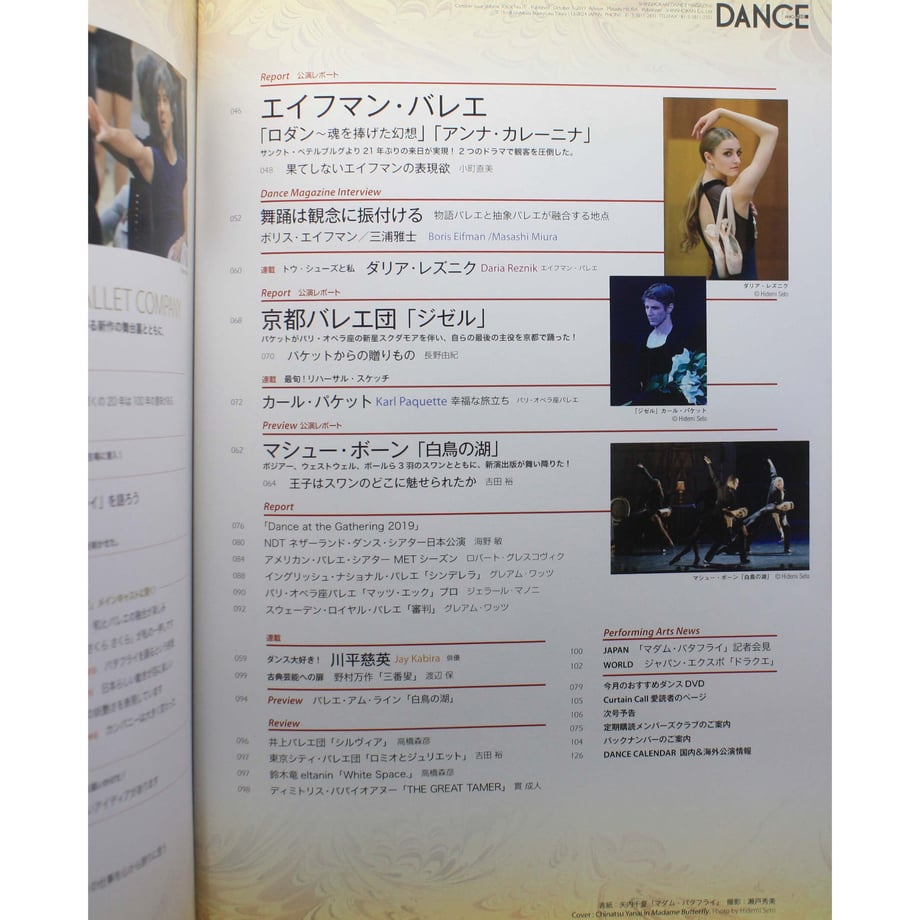 DANCE
Report 公演レポート
046 エイフマン・バレエ
「ロダン〜魂を捧げた幻想」「アンナ・カレーニナ」
サンクト・ペテルブルグより21年ぶりの来日が実現！2つのドラマで観客を圧倒した。
048 果てしないエイフマンの表現欲 小町直美
Dance Magazine Interview
052 舞踊は観念に振付ける 物語バレエと抽象バレエが融合する地点
ボリス・エイフマン／三浦雅士 Boris Eifman /Masashi Miura
060 連載 トウ・シューズと私 ダリア・レズニク Daria Reznik エイフマン・バレエ
ダリア・レズニク
© Hidemi Seto
Report 公演レポート
068 京都バレエ団「ジゼル」
パケットがパリ・オペラ座の新星スクダモアを伴い、自らの最後の主役を京都で踊った！
070 パケットからの贈りもの 長野由紀
連載 最旬！リハーサル・スケッチ
072 カール・パケット Karl Paquette 幸福な旅立ち パリ・オペラ座バレエ
「ジゼル」カール・パケット
© Hidemi Seto
Preview 公演レポート
062 マシュー・ボーン「白鳥の湖」
ボジアー、ウェストウェル、ボールら3羽のスワンとともに、新演出版が舞い降りた！
064 王子はスワンのどこに魅せられたか 吉田 裕
マシュー・ボーン「白鳥の湖」 © Hidemi Seto
Report
076 「Dance at the Gathering 2019」
080 NDT ネザーランド・ダンス・シアター日本公演 海野 敏
084 アメリカン・バレエ・シアター METシーズン ロバート・グレスコヴィク
088 イングリッシュ・ナショナル・バレエ「シンデレラ」 グレアム・ワッツ
090 パリ・オペラ座バレエ「マッツ・エック」プロ ジェラール・マノニ
092 スウェーデン・ロイヤル・バレエ「審判」 グレアム・ワッツ
連載
059 ダンス大好き！ 川平慈英 Jay Kabira 俳優
099 古典芸能への扉 野村万作「三番叟」 渡辺 保
094 Preview バレエ・アム・ライン「白鳥の湖」
Review
096 井上バレエ団「シルヴィア」 高橋森彦
097 東京シティ・バレエ団「ロミオとジュリエット」 吉田 裕
097 鈴木竜 eltanin「White Space.」 高橋森彦
098 ディミトリス・パパイオアヌー「THE GREAT TAMER」 貫 成人
Performing Arts News
100 JAPAN 「マダム・バタフライ」記者会見
102 WORLD ジャパン・エクスポ「ドラクエ」
079 今月のおすすめダンスDVD
105 Curtain Call 愛読者のページ
106 次号予告
075 定期購読メンバーズクラブのご案内
104 バックナンバーのご案内
126 DANCE CALENDAR 国内＆海外公演情報
表紙：矢内千夏「マダム・バタフライ」 撮影：瀬戸秀美
Cover : Chinatsu Yanai in Madame Butterfly. Photo by Hidemi Seto
ALLET COMPANY